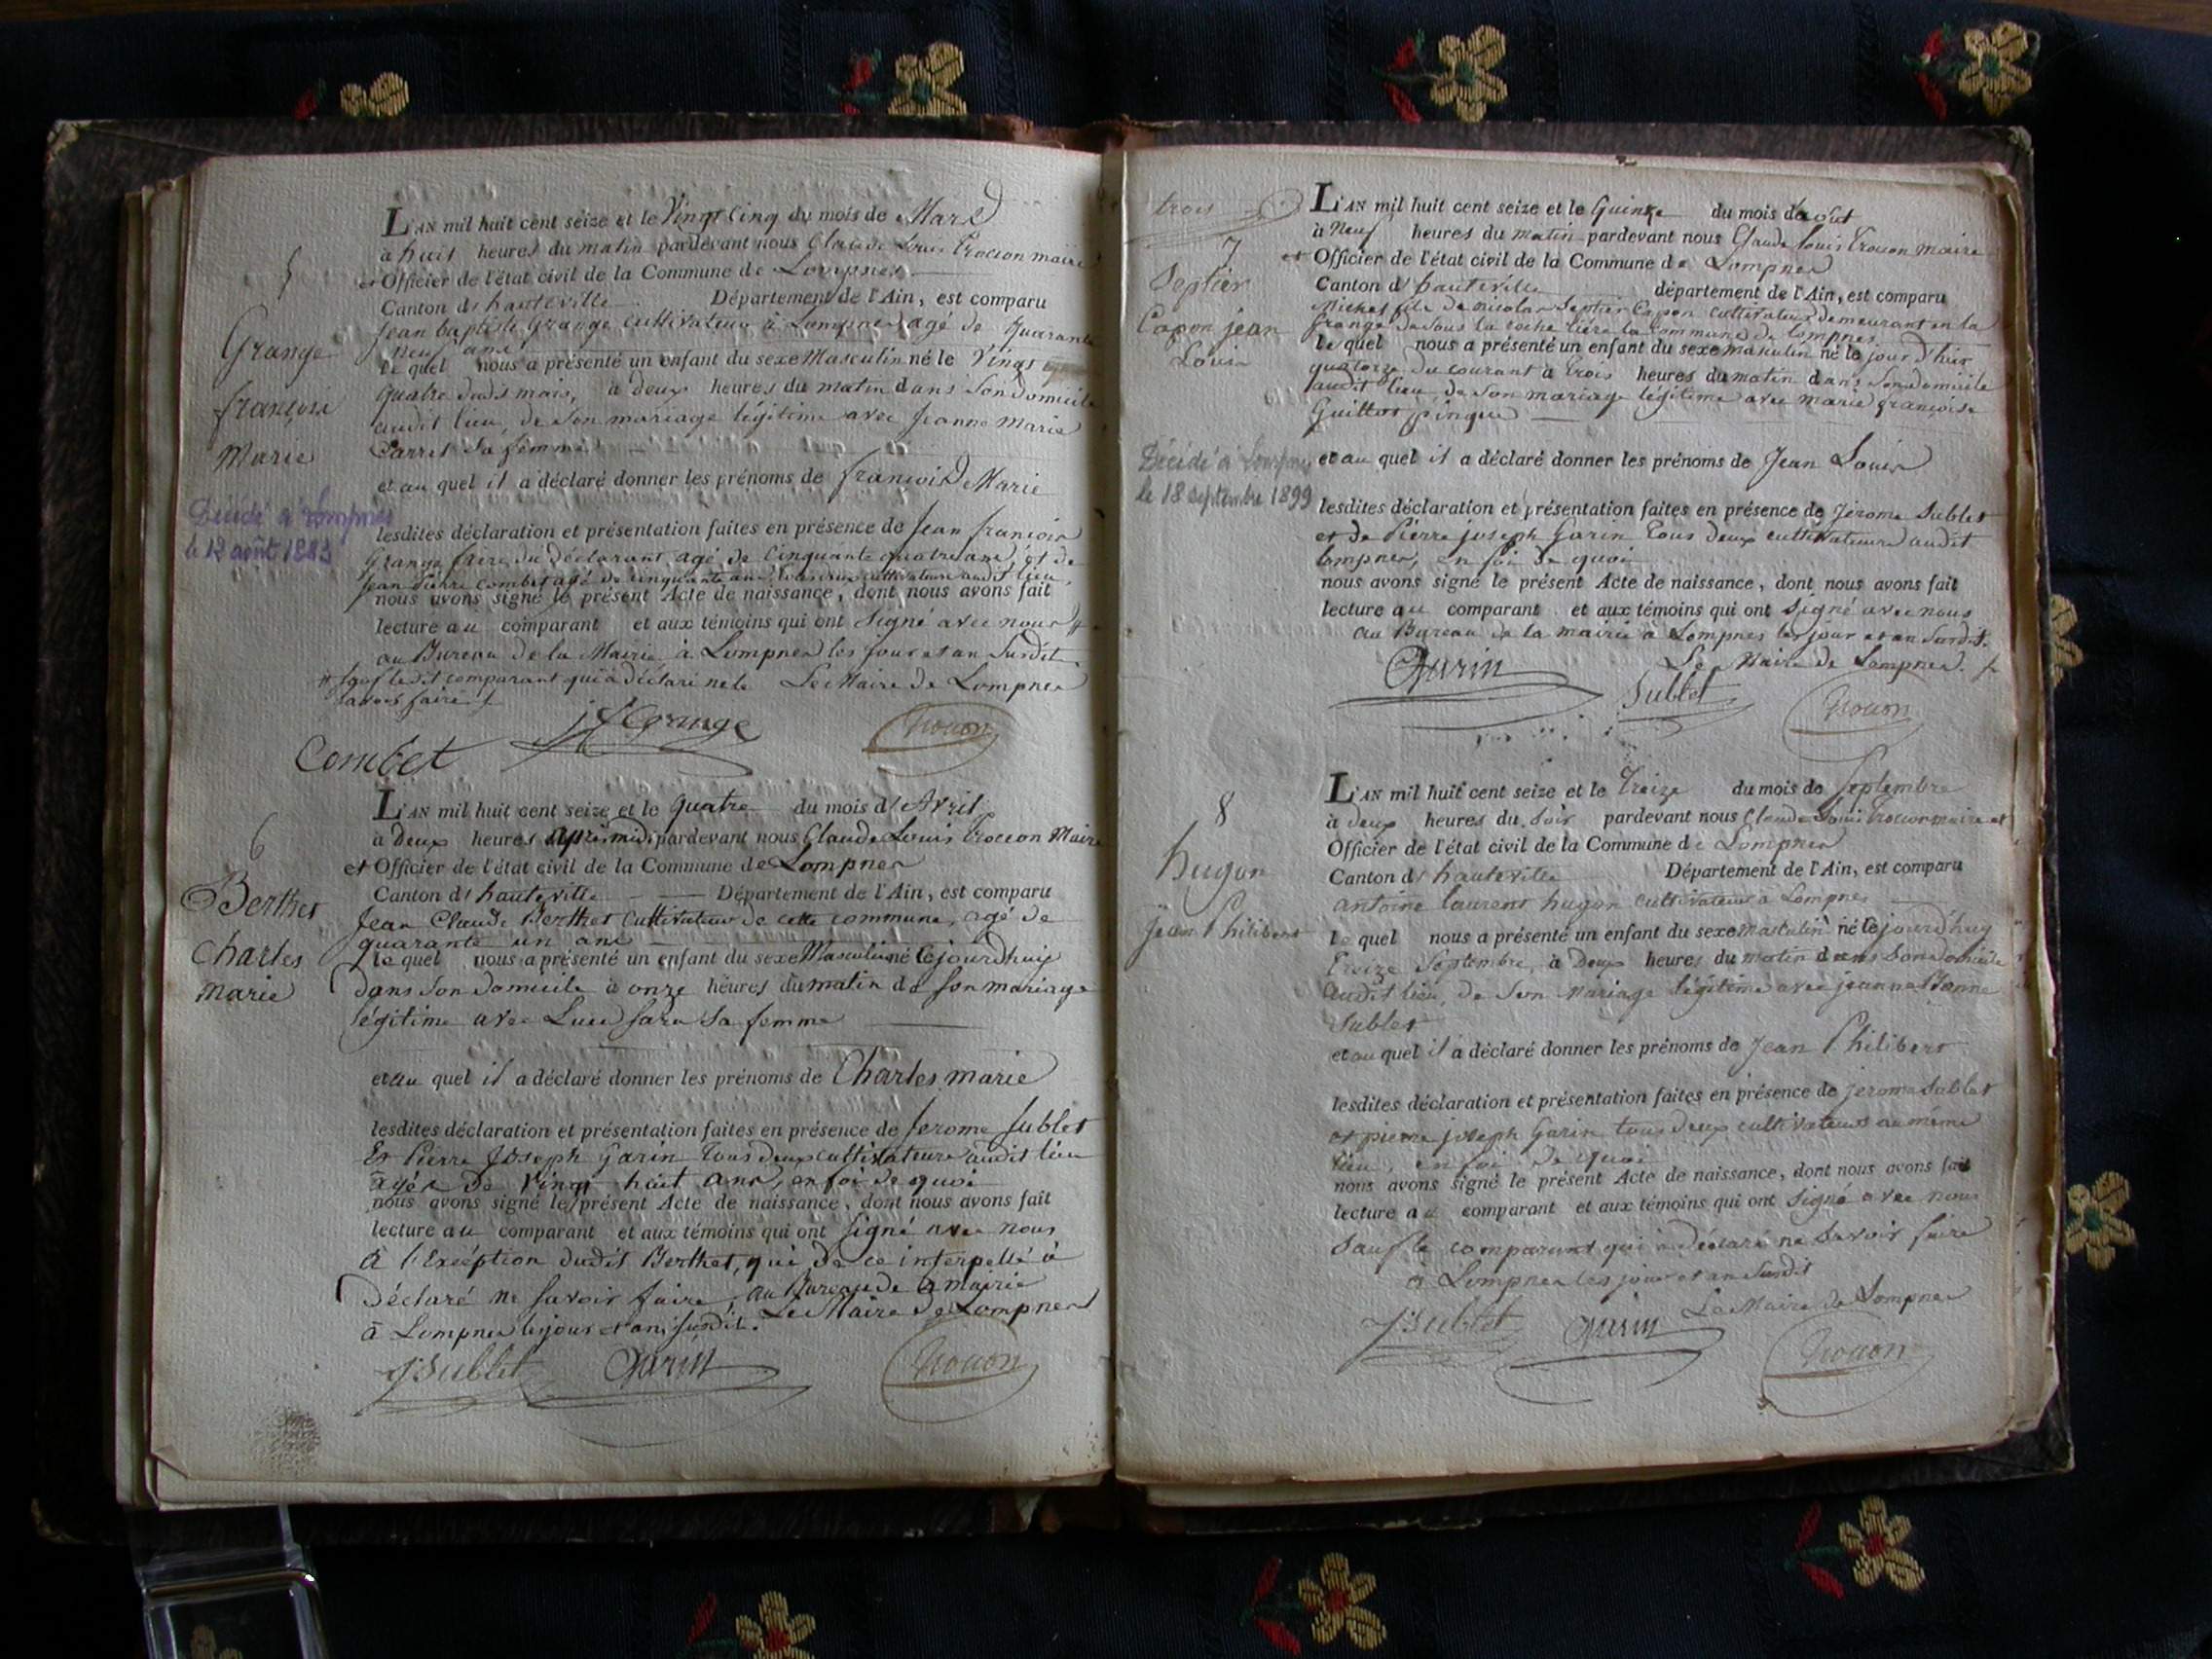 5
Grange
françois
Marie
Décédé a Lompnes
le 12 août 1883
L'AN mil huit cent seize et le Vingt Cinq du mois de Mars
à huit heures du matin pardevant nous Claude Louis Trocon maire
et Officier de l'état civil de la Commune de Lompnes
Canton d'hauteville Département de l'Ain, est comparu
Jean baptiste Grange cultivateur à Lompnes agé de quarante
neuf ans
le quel nous a présenté un enfant du sexe Masculin né le Vingt
quatre dudit mois, à deux heures du matin dans Son Domicile
audit lieu, de Son mariage légitime avec Jeanne Marie
Carret Sa femme
et au quel il a déclaré donner les prénoms de françois Marie
lesdites déclaration et présentation faites en présence de Jean françois
Grange frère du déclarant, agé de Cinquante quatre ans, et de
Jean Pierre Combet agé de cinquante ans, tous deux cultivateurs audit lieu,
nous avons signé le présent Acte de naissance, dont nous avons fait
lecture au comparant et aux témoins qui ont Signé avec nous #
au Bureau de la Mairie à Lompnes les jour et an Susdit.
# sauf ledit comparant qui a déclaré ne le Le Maire de Lompnes
savoir faire
Combet jf Grange Trocon
6
Berthet
Charles
Marie
L'AN mil huit cent seize et le quatre du mois d'Avril
à Deux heures après midi pardevant nous Claude Louis Trocon Maire
et Officier de l'état civil de la Commune de Lompnes
Canton d'hauteville Département de l'Ain, est comparu
Jean Claude Berthet Cultivateur de cette commune, agé de
quarante un ans
le quel nous a présenté un enfant du sexe Masculin né Cejourdhuy
dans Son domicile à onze heures du matin de Son mariage
légitime avec Sa femme
et au quel il a déclaré donner les prénoms de Charles marie
lesdites déclaration et présentation faites en présence de Jerome Sublet
Et Pierre Joseph Garin Tous deux cultivateurs audit lieu
agés de Vingt huit ans, en foi de quoi
nous avons signé le présent Acte de naissance, dont nous avons fait
lecture au comparant et aux témoins qui ont Signé avec nous
à l'Exception dudit Berthet, qui de ce interpellé à
Déclaré ne Savoir faire, au Bureau de la mairie
à Lompnes les jour et an susdit. Le Maire de Lompnes
J Sublet Garin Trocon
trois
7
Septier
Capon jean
Louis
Décédé a Lompnes
le 18 Septembre 1899
L'AN mil huit cent seize et le Quinze du mois d'aout
à Neuf heures du matin pardevant nous Claude Louis Trocon maire
et Officier de l'état civil de la Commune de Lompnes
Canton d'hauteville département de l'Ain, est comparu
Michel fils de nicolas Septier Capon cultivateur demeurant en la
Grange dessous la roche rière la commune de Lompnes
le quel nous a présenté un enfant du sexe masculin né le jour d'hier
quatorze du courant à trois heures du matin dans Son domicile
audit lieu, de Son mariage légitime avec marie françoise
Guillot pingue
et au quel il a déclaré donner les prénoms de Jean Louis
lesdites déclaration et présentation faites en présence de Jerome Sublet
et de Pierre joseph Garin Tous deux cultivateurs audit
Lompnes, en foi de quoi
nous avons signé le présent Acte de naissance, dont nous avons fait
lecture au comparant et aux témoins qui ont Signé avec nous
au Bureau de la mairie à Lompnes les jour et an Susdit.
Le Maire de Lompnes.
Garin Sublet Trocon
8
hugon
jean Philibert
L'AN mil huit cent seize et le Treize du mois de Septembre
à deux heures du Soir pardevant nous Claude Louis Trocon maire et
Officier de l'état civil de la Commune de Lompnes
Canton d'hauteville Département de l'Ain, est comparu
antoine laurent hugon cultivateur à Lompnes
le quel nous a présenté un enfant du sexe Masculin né Cejourdhuy
Treize Septembre, à Deux heures du matin dans Son domicile
audit lieu, de Son Mariage légitime avec jeanne
Sublet
et au quel il a déclaré donner les prénoms de Jean Philibert
lesdites déclaration et présentation faites en présence de jerome Sublet
et pierre joseph Garin tous deux cultivateurs au même
lieu, en foi de quoi
nous avons signé le présent Acte de naissance, dont nous avons fait
lecture au comparant et aux témoins qui ont Signé avec nous
Sauf le comparant qui a Déclaré ne Savoir faire
à Lompnes les jour et an Susdit
Le Maire de Lompnes
J Sublet Garin Trocon